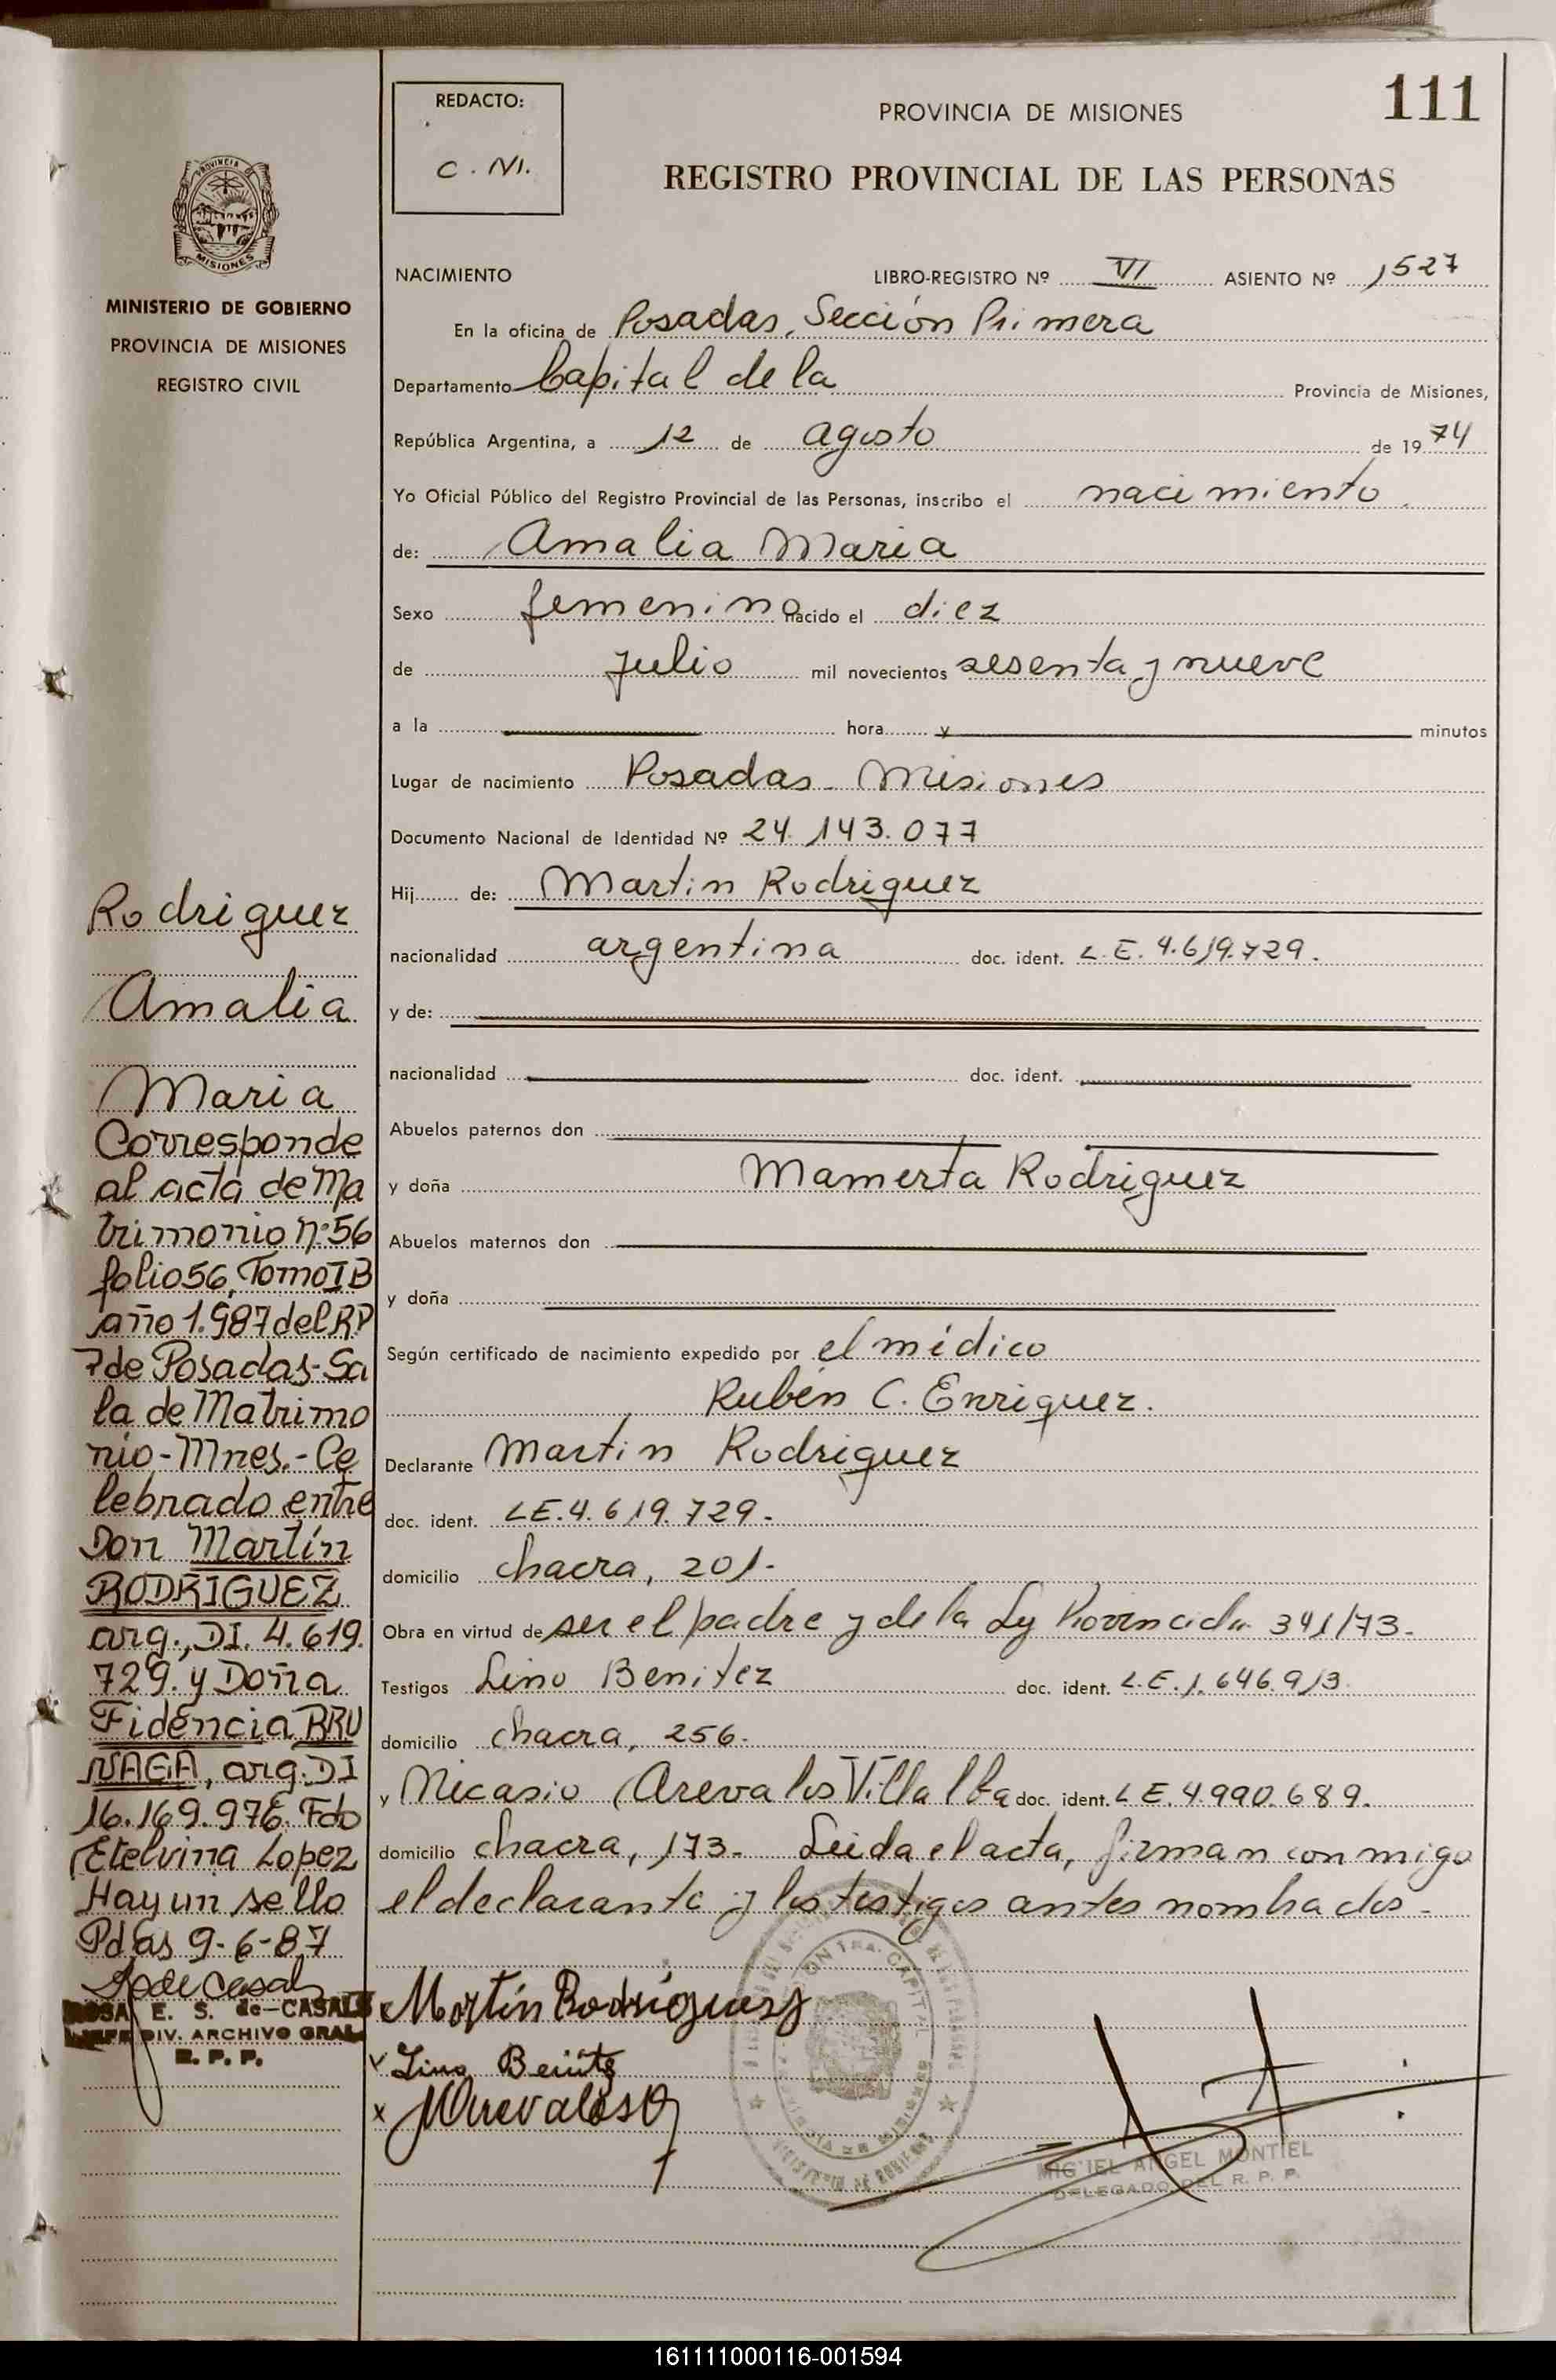 111
REDACTO:
C. M.
PROVINCIA DE MISIONES
REGISTRO PROVINCIAL DE LAS PERSONAS
PROVINCIA
MISIONES
MINISTERIO DE GOBIERNO
PROVINCIA DE MISIONES
REGISTRO CIVIL
NACIMIENTO LIBRO-REGISTRO Nº VI ASIENTO Nº 1527
En la oficina de Posadas, Sección Primera
Departamento Capital de la Provincia de Misiones,
República Argentina, a 12 de agosto de 1974
Yo Oficial Público del Registro Provincial de las Personas, inscribo el nacimiento
de: Amalia Maria
Sexo femenino nacido el diez
de julio mil novecientos sesenta y nueve
a la hora y minutos
Lugar de nacimiento Posadas - Misiones
Documento Nacional de Identidad Nº 24.143.077
Hij de: Martin Rodriguez
nacionalidad argentina doc. ident. L.E. 4.619.729.
y de:
nacionalidad doc. ident.
Abuelos paternos don
y doña Mamerta Rodriguez
Abuelos maternos don
y doña
Según certificado de nacimiento expedido por el médico
Rubén C. Enriquez.
Declarante Martin Rodriguez
doc. ident. LE.4.619.729.
domicilio chacra, 201.
Obra en virtud de ser el padre y de la Ley Provincial 341/73.
Testigos Lino Benitez doc. ident. L.E.1.646.913.
domicilio chacra, 256.
y Nicasio Arevalos Villalba doc. ident. LE.4.990.689.
domicilio chacra, 173. Leida el acta, firman conmigo
el declarante y los testigos antes nombrados.
Martin Rodriguez
x Lino Benite
x NArevalos
MIGUEL ANGEL MONTIEL
DELEGADO DEL R. P. P.
Rodriguez
Amalia
Maria
Corresponde
al acta de Ma
trimonio nº 56
folio 56, Tomo I B
año 1.987 del RP
7 de Posadas-Sa
la de Matrimo
nio-Mnes.-Ce
lebrado entre
Don Martín
RODRIGUEZ
arg., DI. 4.619.
729. y Doña
Fidencia BRU
NAGA, arg. DI
16.169.976. Fdo
Etelvina Lopez
Hay un sello
Pdas 9-6-87
ROSA E. S. de CASALS
JEFE DIV. ARCHIVO GRAL
R. P. P.
161111000116-001594